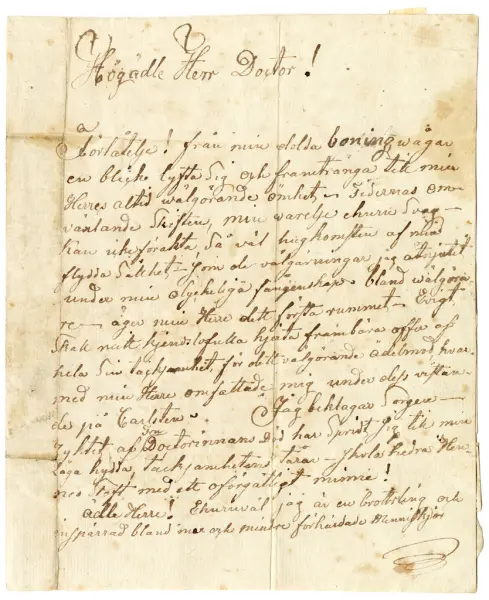 Högädle Herr Doctor!
Förlåtelse! från min dolda boning wågar
en blick lyfta sig och framtränga till min
Herres altid wälgörande ömhet – Tidernas om-
växlande Skiften, min warelse ehuru Swag –
Kan icke förakta Så väl hugkomsten af min
flydda Sällhet – Som de välgärningar jag åtnjutit
under min olyckeliga fångenskap. bland wälgöra-
re – äger min Herre det första rummet – Evigt
Skall mitt hjerta frambära offer af
hela Sin tacksamhet, för det wälgörande ädelmod hvar-
med min Herre omfattade mig under dess vistan-
de på Carlsten. Jag beklagar Sorgen –
Ryktet af Doctorinnans Död har Spridt Sig till min
låga hydda, tacksamhetens tårar – Skola hedra Hen-
nes Stoft med ett oförgätligt minne!
ädle Herre! Ehuruväl jag är en brottsling och
inspärrad bland mer och mindre förhärdade Menniskjor